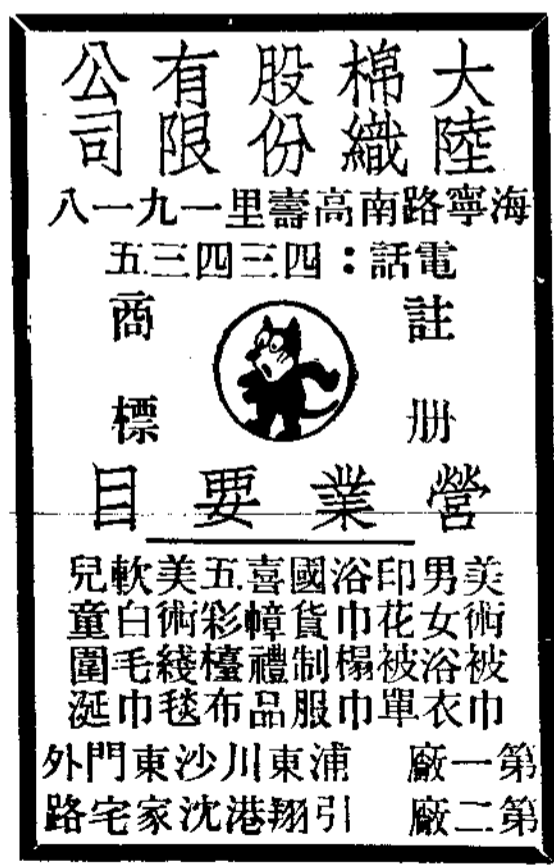 大陸棉織股份有限公司
海寧路南高壽里一九一八
電話：四三四三五
註册商標
營業要目
美術被巾
男女浴衣
印花被單
浴巾榻巾
國貨制服
喜幛禮品
五彩檯布
美術綫毯
軟白毛巾
兒童圍涎
第一廠 浦東川沙東門外
第二廠 引翔港沈家宅路